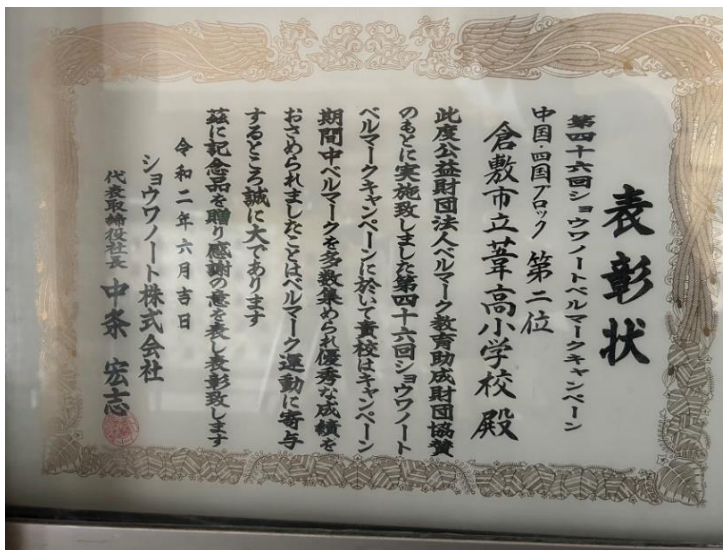 表彰状
第四十六回ショウワノートベルマークキャンペーン
中国・四国ブロック 第二位
倉敷市立葦高小学校 殿
此度公益財団法人ベルマーク教育助成財団協賛
のもとに実施致しました第四十六回ショウワノート
ベルマークキャンペーンに於いて貴校はキャンペーン
期間中ベルマークを多数集められ優秀な成績を
おさめられましたことはベルマーク運動に寄与
するところ誠に大であります
茲に記念品を贈り感謝の意を表し表彰致します
令和二年六月吉日
ショウワノート株式会社
代表取締役社長 中条 宏志